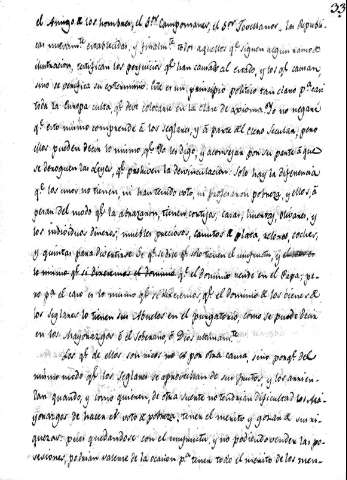 33
el Amigo de los hombres, el Sr. Campomanes, el Sr. Jovellanos, las Republi-
cas nuevamte. establecidas, y finalmte. todos aquellos qe. siguen algun ramo de
ilustracion, certifican los perjuicios qe. han causado al estado, y los qe. causan
sino se verifica su exterminio. Este es un principio politico tan claro pa. casi
toda la Europa culta, qe. deve colocarse en la clase de axioma. Yo no negaré
qe. esto mismo comprende à los seglares, y à parte del clero Secular; pero
ellos pueden decir lo mismo qe. yo les digo, y aconsejar por su parte à que
se deroguen las Leyes qe. prohiven la desvinculacion: Solo hay la diferencia
qe. los unos no tienen, ni han tenido voto, ni profesaron pobreza, y ellos, à
pesar del modo qe. la abrazaron, tienen cortijos, casas, huertas, Olivares, y
los individuos dineros, muebles preciosos, de plata, reloxes, coches,
y quintas para divertirse. Se qe. se dice qe. solo tienen el usufructo, y
lo mismo qe. si el dominio qe. el dominio reside en el Papa; pe-
ro pa. el caso es lo mismo qe. si dixeremos qe. el dominio de los bienes de
los seglares lo tienen sus Abuelos en el purgatorio, como se puede decir
en los Mayorazgos ó el soberano, ó Dios ultimamte.
Los qe. de ellos son ricos no es por otra causa, sino porqe. del
mismo modo qe. los Seglares se aprovechan de sus frutos, y los arrien-
dan quando, y como quieren, de otra suerte no tendrian dificultad los Ma-
yorazgos de hacer el voto de pobreza, tener el merito y gozar de sus ri-
quezas: pues quedandose con el usufructo, y no pudiendo vender las po-
sesiones, podrian valerse de la ocasion pa. tener todo el merito de los men-